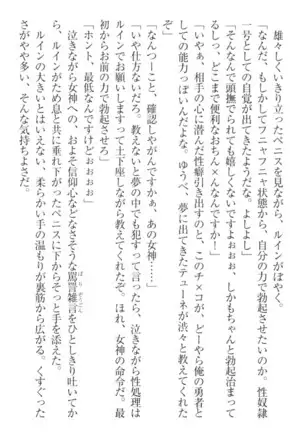 雄々しくいきり立ったペニスを見ながら、ルインがぼやく。
「なんだ、もしかしてフニャフニャ状態から、自分の力で勃起させたいのか。性奴隷
一号としての自覚が出てきたようだな。よしよし」
「そんなんで頭撫でられても嬉しくないですよぉぉぉ、しかもちゃんと勃起治まって
るしっ。どこまで便利なおち×んなんですか！」
「いやぁ、相手の心に潜んだ性癖引き出すのと、このチ×コが、どーやら俺の勇者と
しての能力っぽいんだよな。ゆうべ、夢に出てきたテューネが渋々と教えてくれた
ぞ」
「なんつーこと、確認しやがんですかぁ、あの女神……」
「いや仕方ないだろ。教えないと夢の中でも犯すって言ったら、泣きながら性処理は
ルインでお願いしますって土下座しながら教えてくれたぞ。ほれ、女神の命令だ。最
初からお前の力で勃起させろ」
「ホント、最低なんですけどぉぉぉぉ」
泣きながら女神への、およそ信仰心などなさそうな罵詈雑言をひとしきり吐いてか
ら、ルインがため息と共に垂れ下がったペニスに下からそっと手を添えた。
ルインの大きいとはいえない、柔らかい手の温もりが裏筋から広がる。くすぐった
さがやや多い、そんな気持ちよさだ。